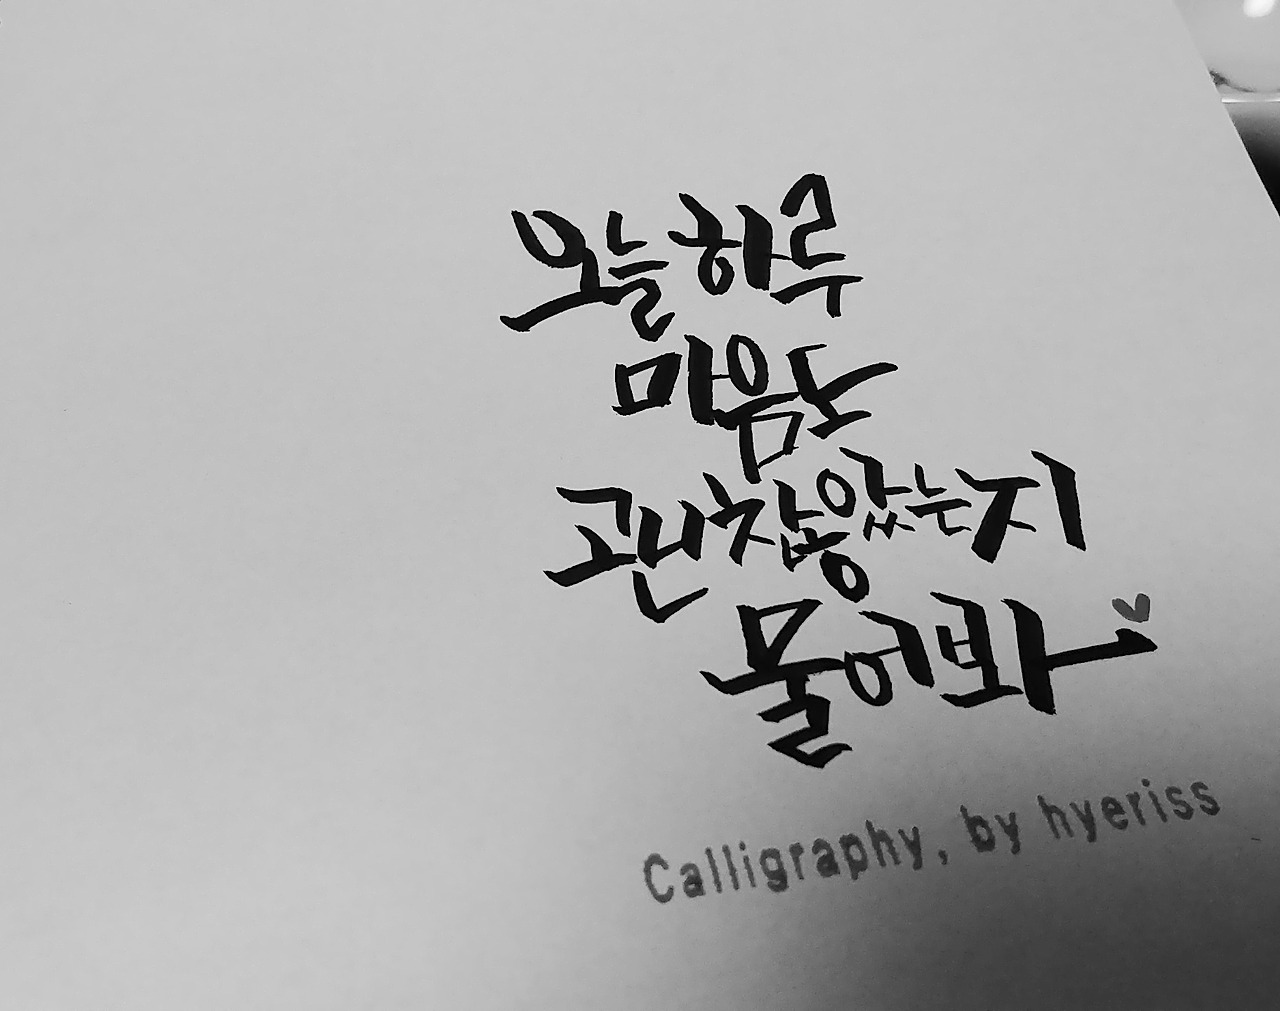 오늘 하루
마음도
괜찮았는지
물어봐
Calligraphy, by hyeriss